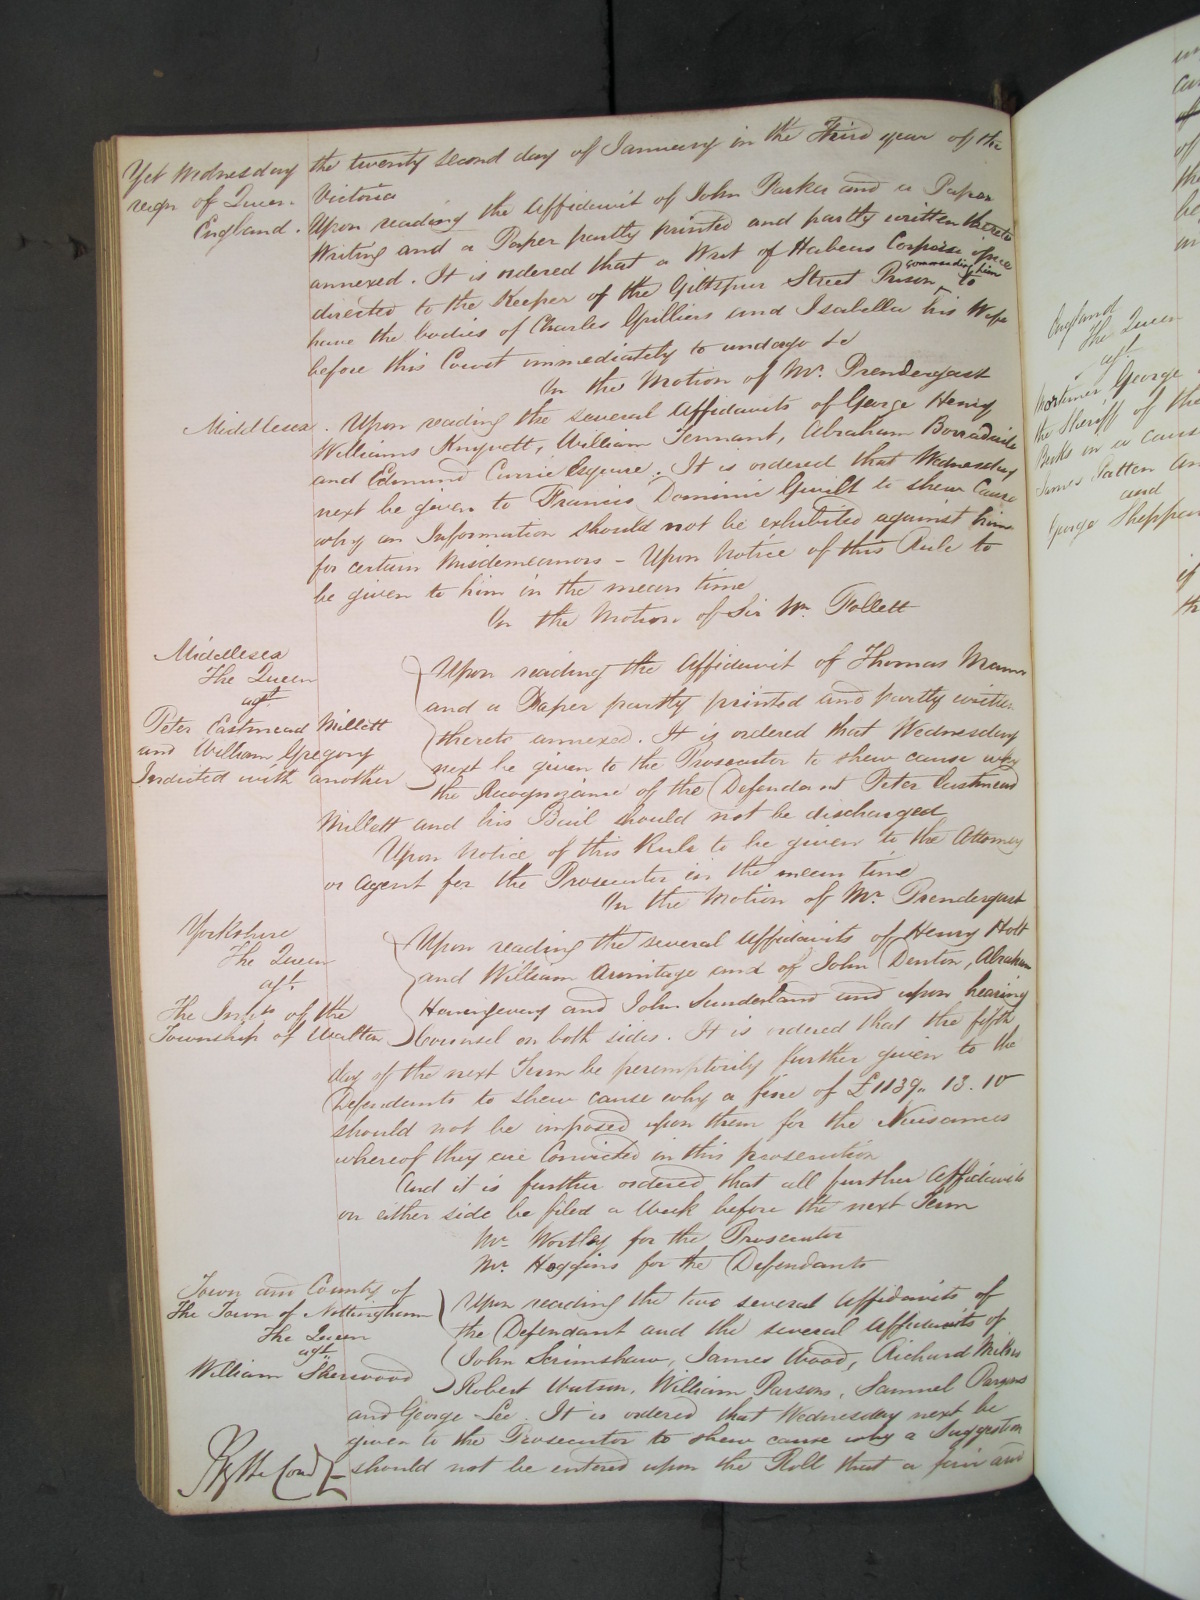 Yet Wednesday the twenty second day of January in the Third year of the
reign of Queen Victoria
England. Upon reading the Affidavit of John Parker and a Paper
Writing and a Paper partly printed and partly written thereto
annexed. It is ordered that a Writ of Habeas Corpus issue
directed to the Keeper of the Giltspur Street Prison commanding him to
have the bodies of Charles Grilliers and Isabella his Wife
before this Court immediately to undergo &c
On the Motion of Mr. Prendergast
Middlesex. Upon reading the several Affidavits of George Henry
Williams Knyvett, William Tennant, Abraham Borradaile
and Edmund Currie Esquire. It is ordered that Wednesday
next be given to Francis Dominic Gwilt to shew Cause
why an Information should not be exhibited against him
for certain Misdemeanors - Upon Notice of this Rule to
be given to him in the mean time
On the Motion of Sir Wm. Follett
Middlesex
The Queen
agt.
Peter Eastmead Millett
and William Gregory
Indicted with another
Upon reading the Affidavit of Thomas
and a Paper partly printed and partly written
thereto annexed. It is ordered that Wednesday
next be given to the Prosecutor to shew cause why
the Recognizance of the Defendant Peter Eastmead
Millett and his Bail should not be discharged
Upon Notice of this Rule to be given to the Attorney
or Agent for the Prosecutor in the mean time
On the Motion of Mr. Prendergast
Yorkshire
The Queen
agt.
The Inhts. of the
Township of Walton
Upon reading the several Affidavits of Henry Holt
and William Armitage and of John Denton, Abraham
and John Sunderland and upon hearing
Counsel on both sides. It is ordered that the fifth
day of the next Term be peremptorily further given to the
Defendants to shew cause why a fine of £1139.. 13. 10
should not be imposed upon them for the Nuisances
whereof they are Convicted in this prosecution
And it is further ordered that all further Affidavits
on either side be filed a Week before the next Term
Mr. Wortley for the Prosecutor
Mr. Hoggins for the Defendants
Town and County of
The Town of Nottingham
The Queen
agt.
William Sherwood
Upon reading the two several Affidavits of
the Defendant and the several Affidavits of
John Scrimshaw, James Wood, Richard
Robert Watson, William Parsons, Samuel Parsons
and George Lee. It is ordered that Wednesday next be
given to the Prosecutor to shew cause why a Suggestion
should not be entered upon the Roll that a fair and
By the Court
England
The Queen
agt.
Mortimer George
the Sheriff of the
Bucks in a cause
James Patten
and
George